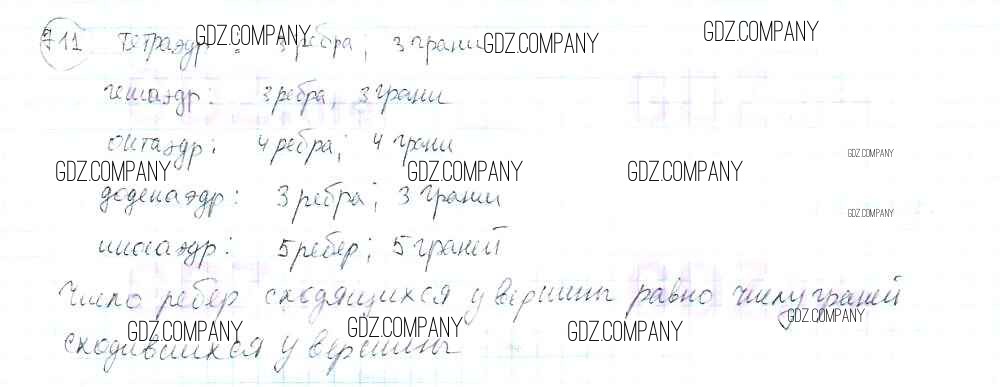 711 тетраэдр: 3 ребра; 3 грани
гексаэдр: 3 ребра, 3 грани
октаэдр: 4 ребра; 4 грани
додекаэдр: 3 ребра; 3 грани
икосаэдр: 5 ребер; 5 граней
Число ребер сходящихся у вершины равно числу граней
сходившихся у вершины
GDZ.COMPANY
GDZ.COMPANY
GDZ.COMPANY
GDZ.COMPANY
GDZ.COMPANY
GDZ.COMPANY
GDZ.COMPANY
GDZ.COMPANY
GDZ.COMPANY
GDZ.COMPANY
GDZ.COMPANY
GDZ.COMPANY